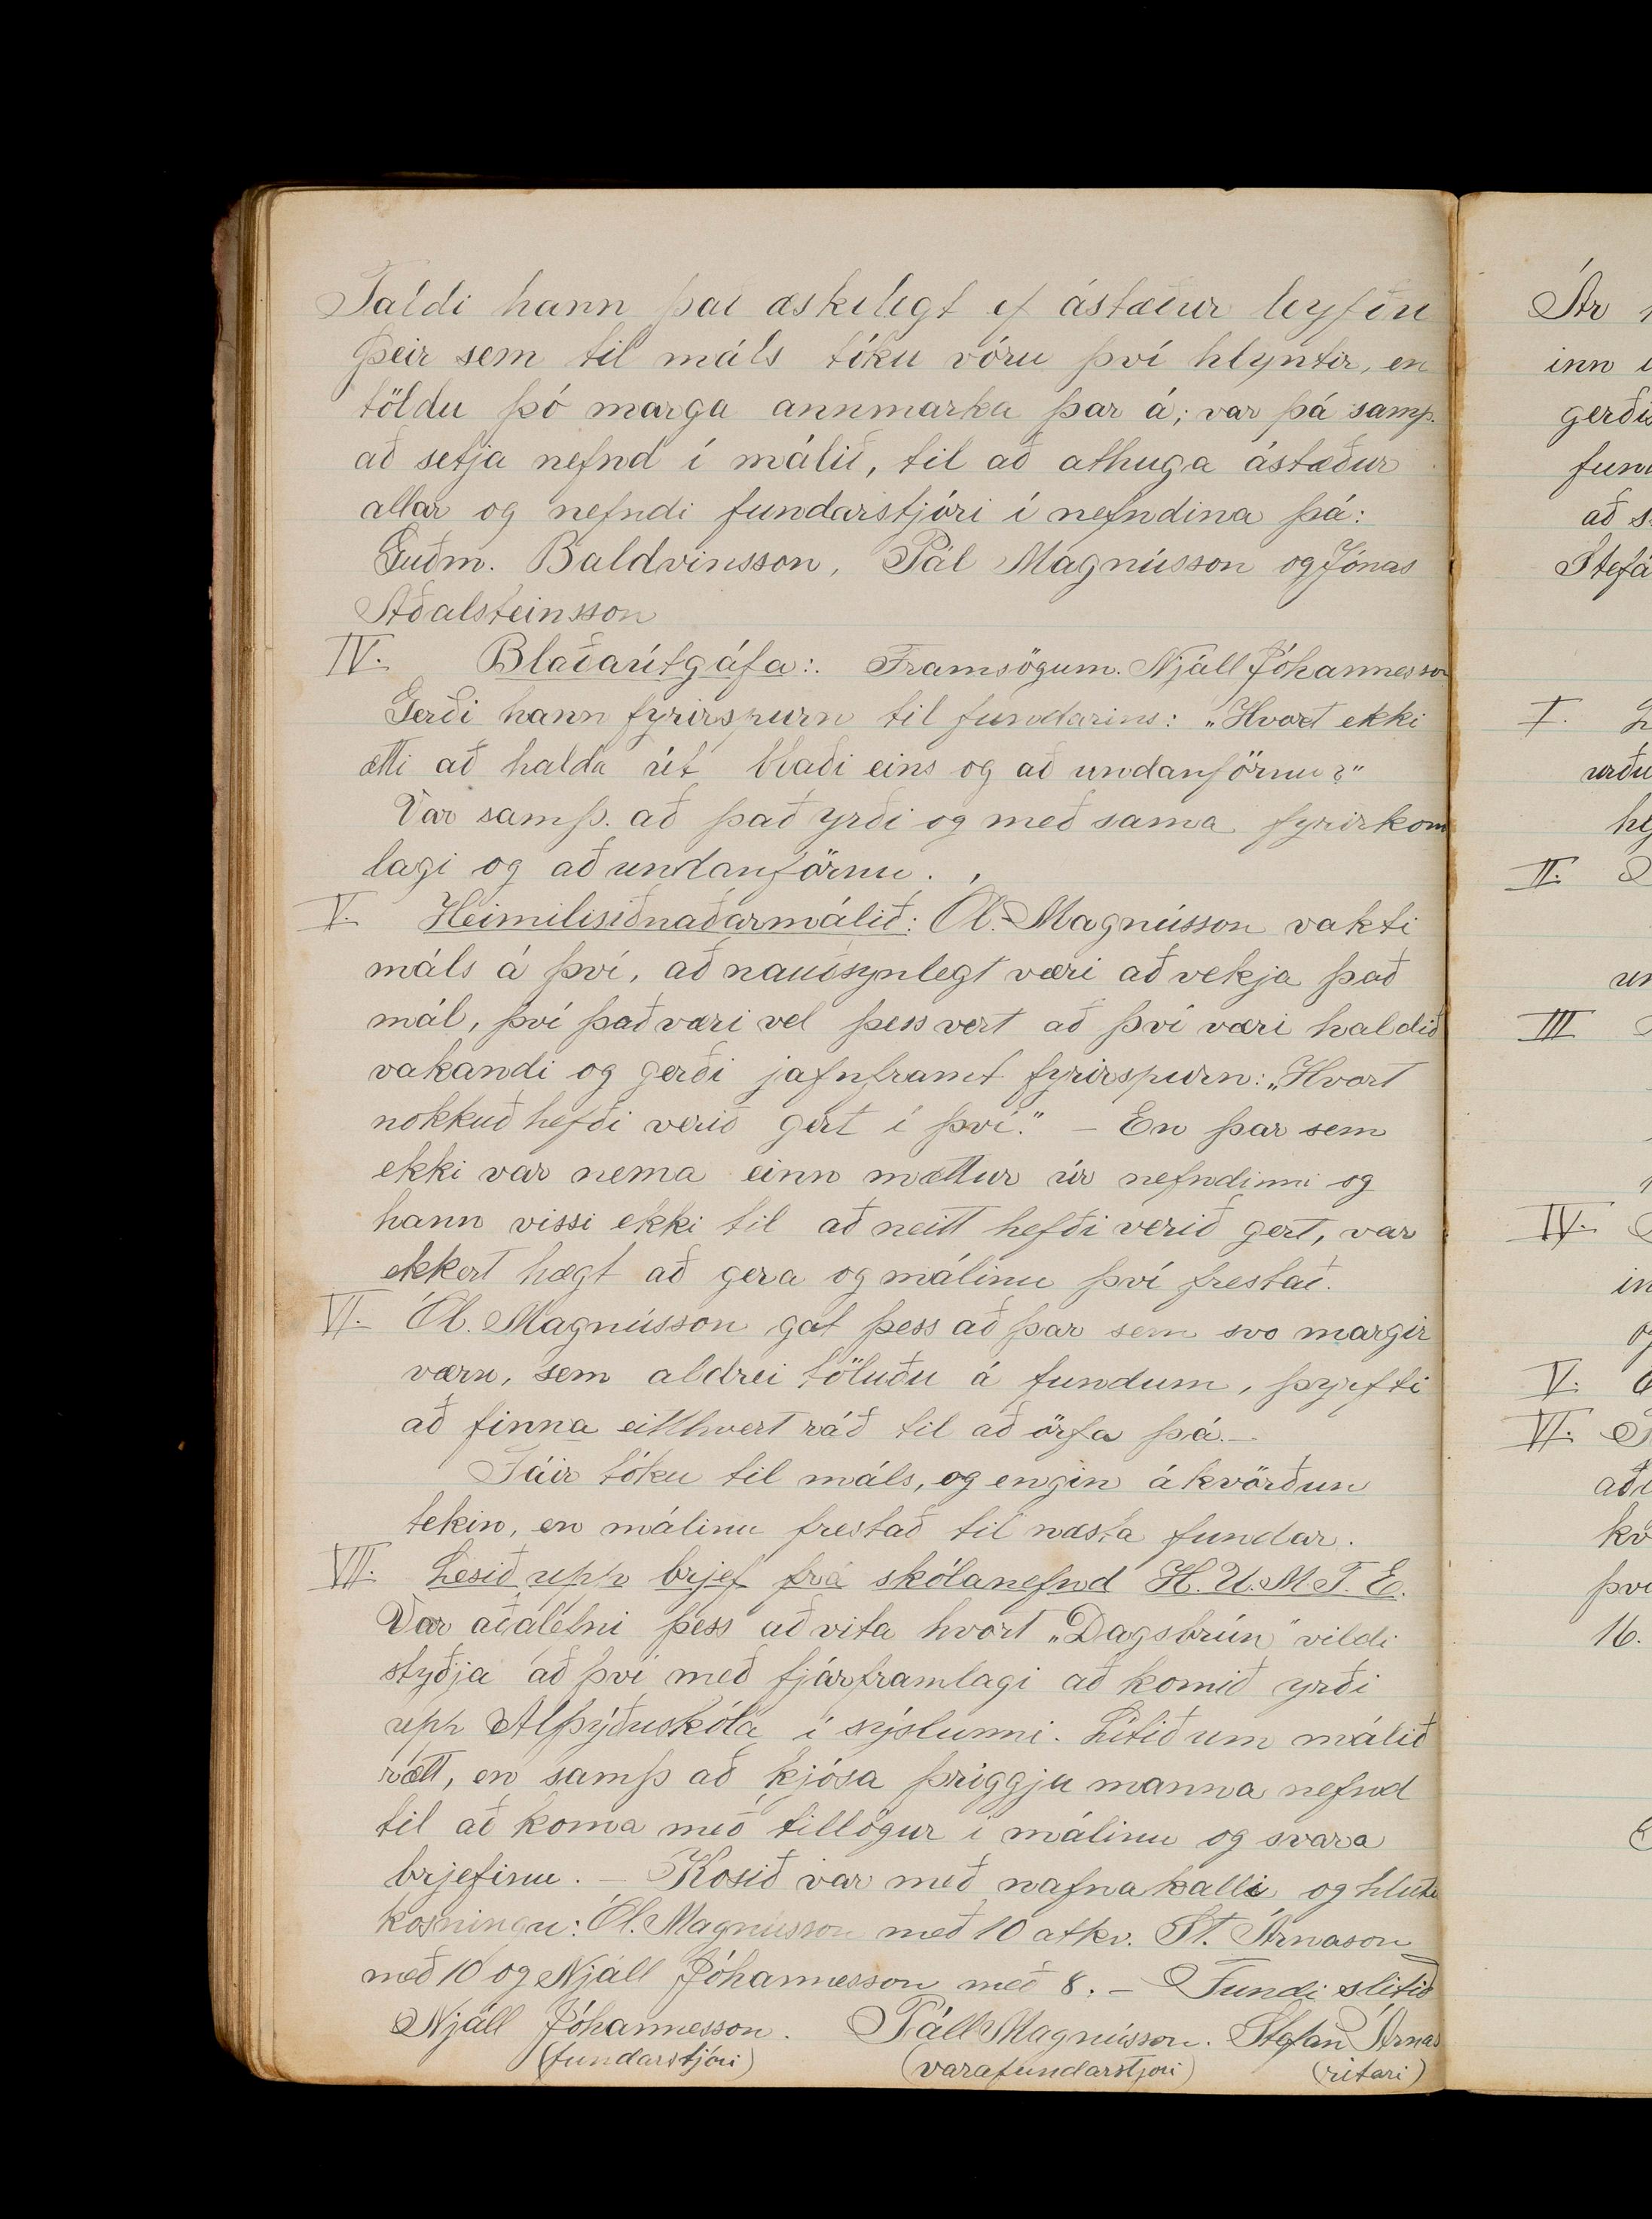 Taldi hann það æskilegt ef ástæður leyfðu
Þeir sem til máls tóku vóru því hlyntir, en
töldu þó marga annmarka þar á; var þá samþ.
að setja nefnd í málið, til að athuga ástæður
allar og nefndi fundarstjóri í nefndina þá:
Guðm. Baldvinsson, Pál Magnússon og Jónas
Aðalsteinsson
IV. Blaðaútgáfa:. Framsögum. Njáll Jóhannesson
Gerði hann fyrirspurn til fundarins: „Hvort ekki
ætti að halda út blaði eins og að undanförnu?"
Var samþ. að það yrði og með sama fyrirkom
lagi og að undanförnu.
V. Heimilisiðnaðarmálið: Ól. Magnússon vakti
máls á því, að nauðsynlegt væri að vekja það
mál, því það væri vel þess vert að því væri haldið
vakandi og gerði jafnframt fyrirspurn: „Hvort
nokkuð hefði verið gert í því." – En þar sem
ekki var nema einn mættur úr nefndinni og
hann vissi ekki til að neitt hefði verið gert, var
ekkert hægt að gera og málinu því frestað.
VI. Ól. Magnússon gat þess að þar sem svo margir
væru, sem aldrei töluðu á fundum, þyrfti
að finna eitthvert ráð til að örfa þá.–
Fáir tóku til máls, og engin ákvörðun
tekin, en málinu frestað til næsta fundar.
VII. Lesið upp brjef frá skólanefnd H.U.M.F.E.
Var aðalefni þess að vita hvort „Dagsbrún" vildi
styðja að því með fjárframlagi að komið yrði
upp Alþýðuskóla í sýslunni. Lítið um málið
rætt, en samþ að kjósa þriggja manna nefnd
til að koma með tillögur í málinu og svara
brjefinu. – Kosið var með nafnakalli og hlutu
kosningu: Ól. Magnússon með 10 atkv. St. Árnason
með 10 og Njáll Jóhannesson með 8. – Fundi slitið
Njáll Jóhannesson. Páll Magnússon. Stefán Árnas
(fundarstjóri) (varafundarstjóri) (ritari)
Ár
inn
gerðis
fun
að s
Stefá
I.
urðu
II.
III
IV.
in
V.
VI.
kv
því
16.